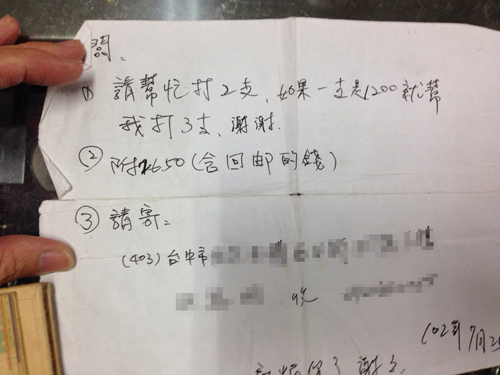 闆。
① 請幫忙打2支,如果一支是1200就幫
我打3支,謝謝.
② 附2650(含回邮的錢)
③ 請寄:
(403)台中市
收
102年7月2
了 謝